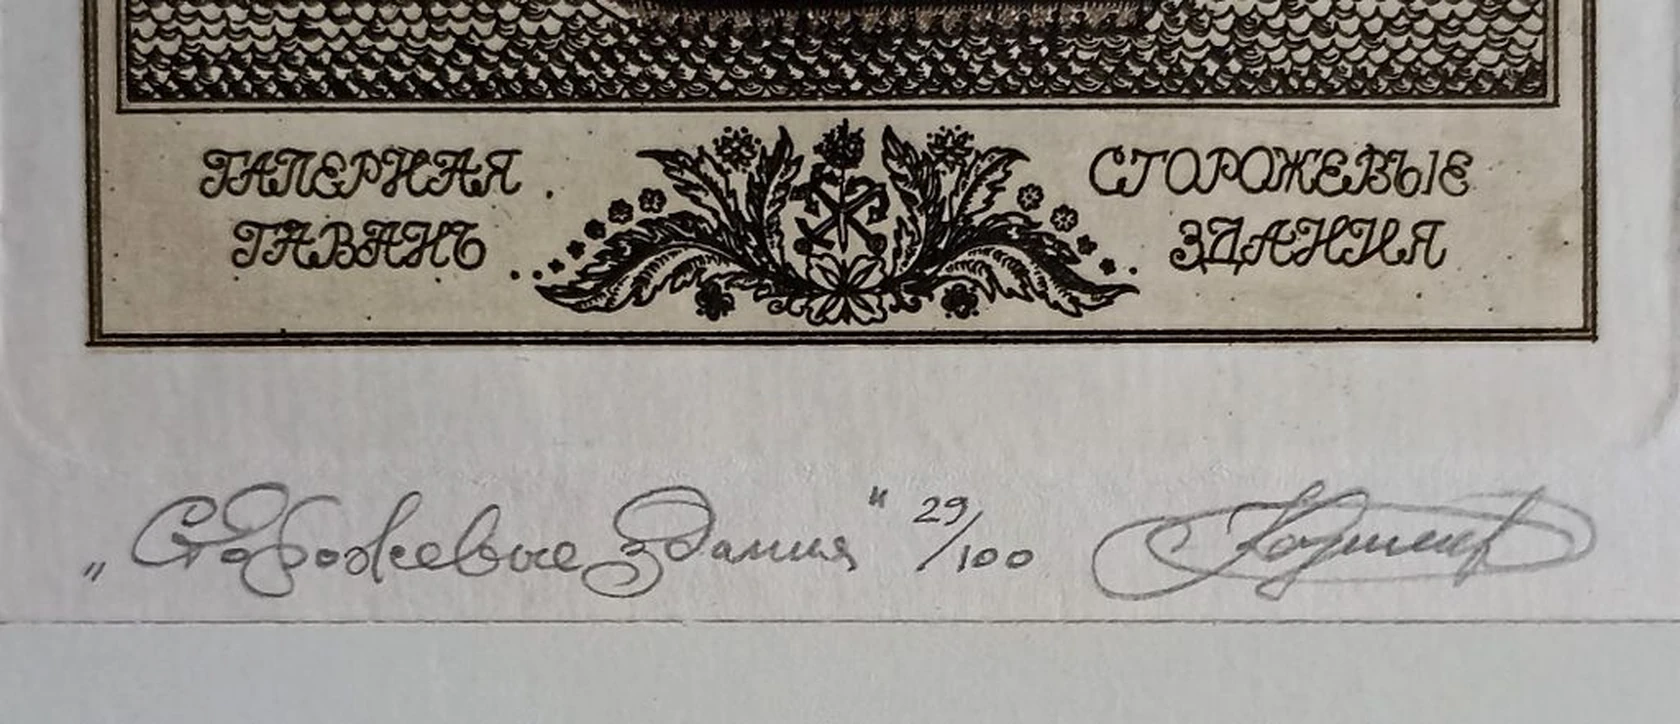 ГАЛЕРНАЯ
ГАВАНЬ
СТОРОЖЕВЫЕ
ЗДАНИЯ
„Сторожевые здания" 29/100